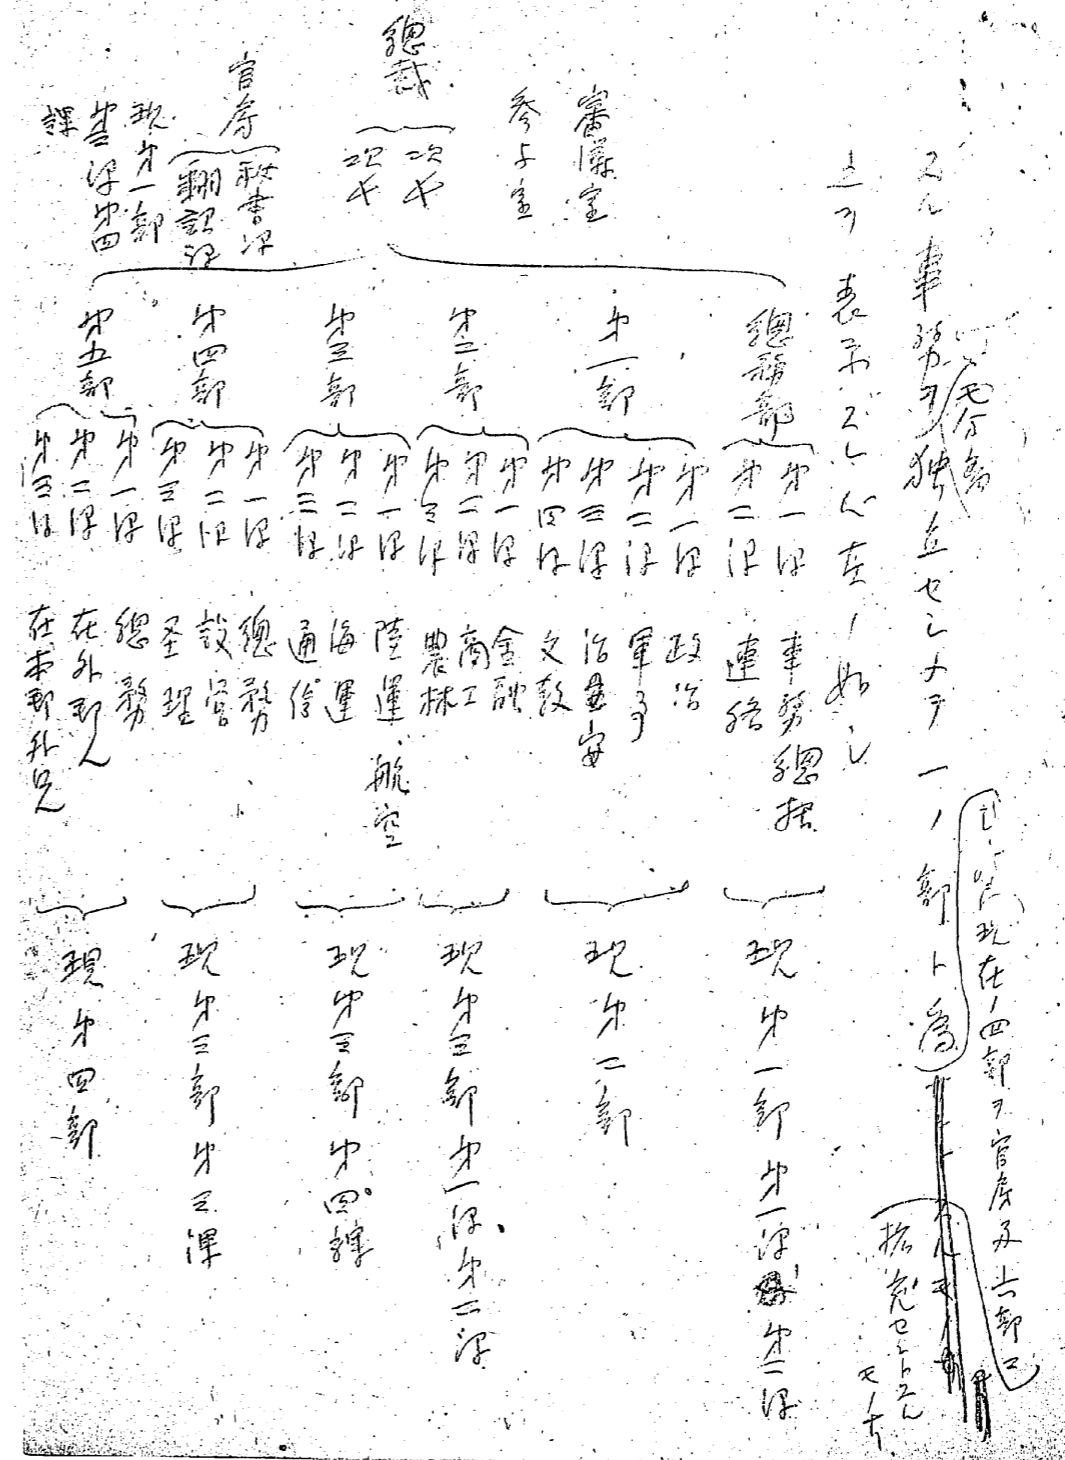 スル事務ヲ独立セシメテ一ノ部ト為
現在ノ四部ヲ官房及六部ニ
拡充セントスルモノナ
之ヲ表示ズレバ左ノ如シ
審議室
参与室
總裁
次長
次長
官房
秘書課
翻訳課
現第一部
第三課第四
課
總務部
第一課 事務總括
第二課 連絡
現第一部第一課第二課
第一部
第一課 政治
第二課 軍事
第三課 治安
第四課 文教
現第二部
第二部
第一課 金融
第二課 商工
第三課 農林
現第三部第一課、第二課
第三部
第一課 陸運、航空
第二課 海運
第三課 通信
現第三部第四課
第四部
第一課 總務
第二課 設営
第三課 圣理
現第三部第三課
第五部
第一課 總務
第二課 在外邦人
第三課 在本邦外児
現第四部